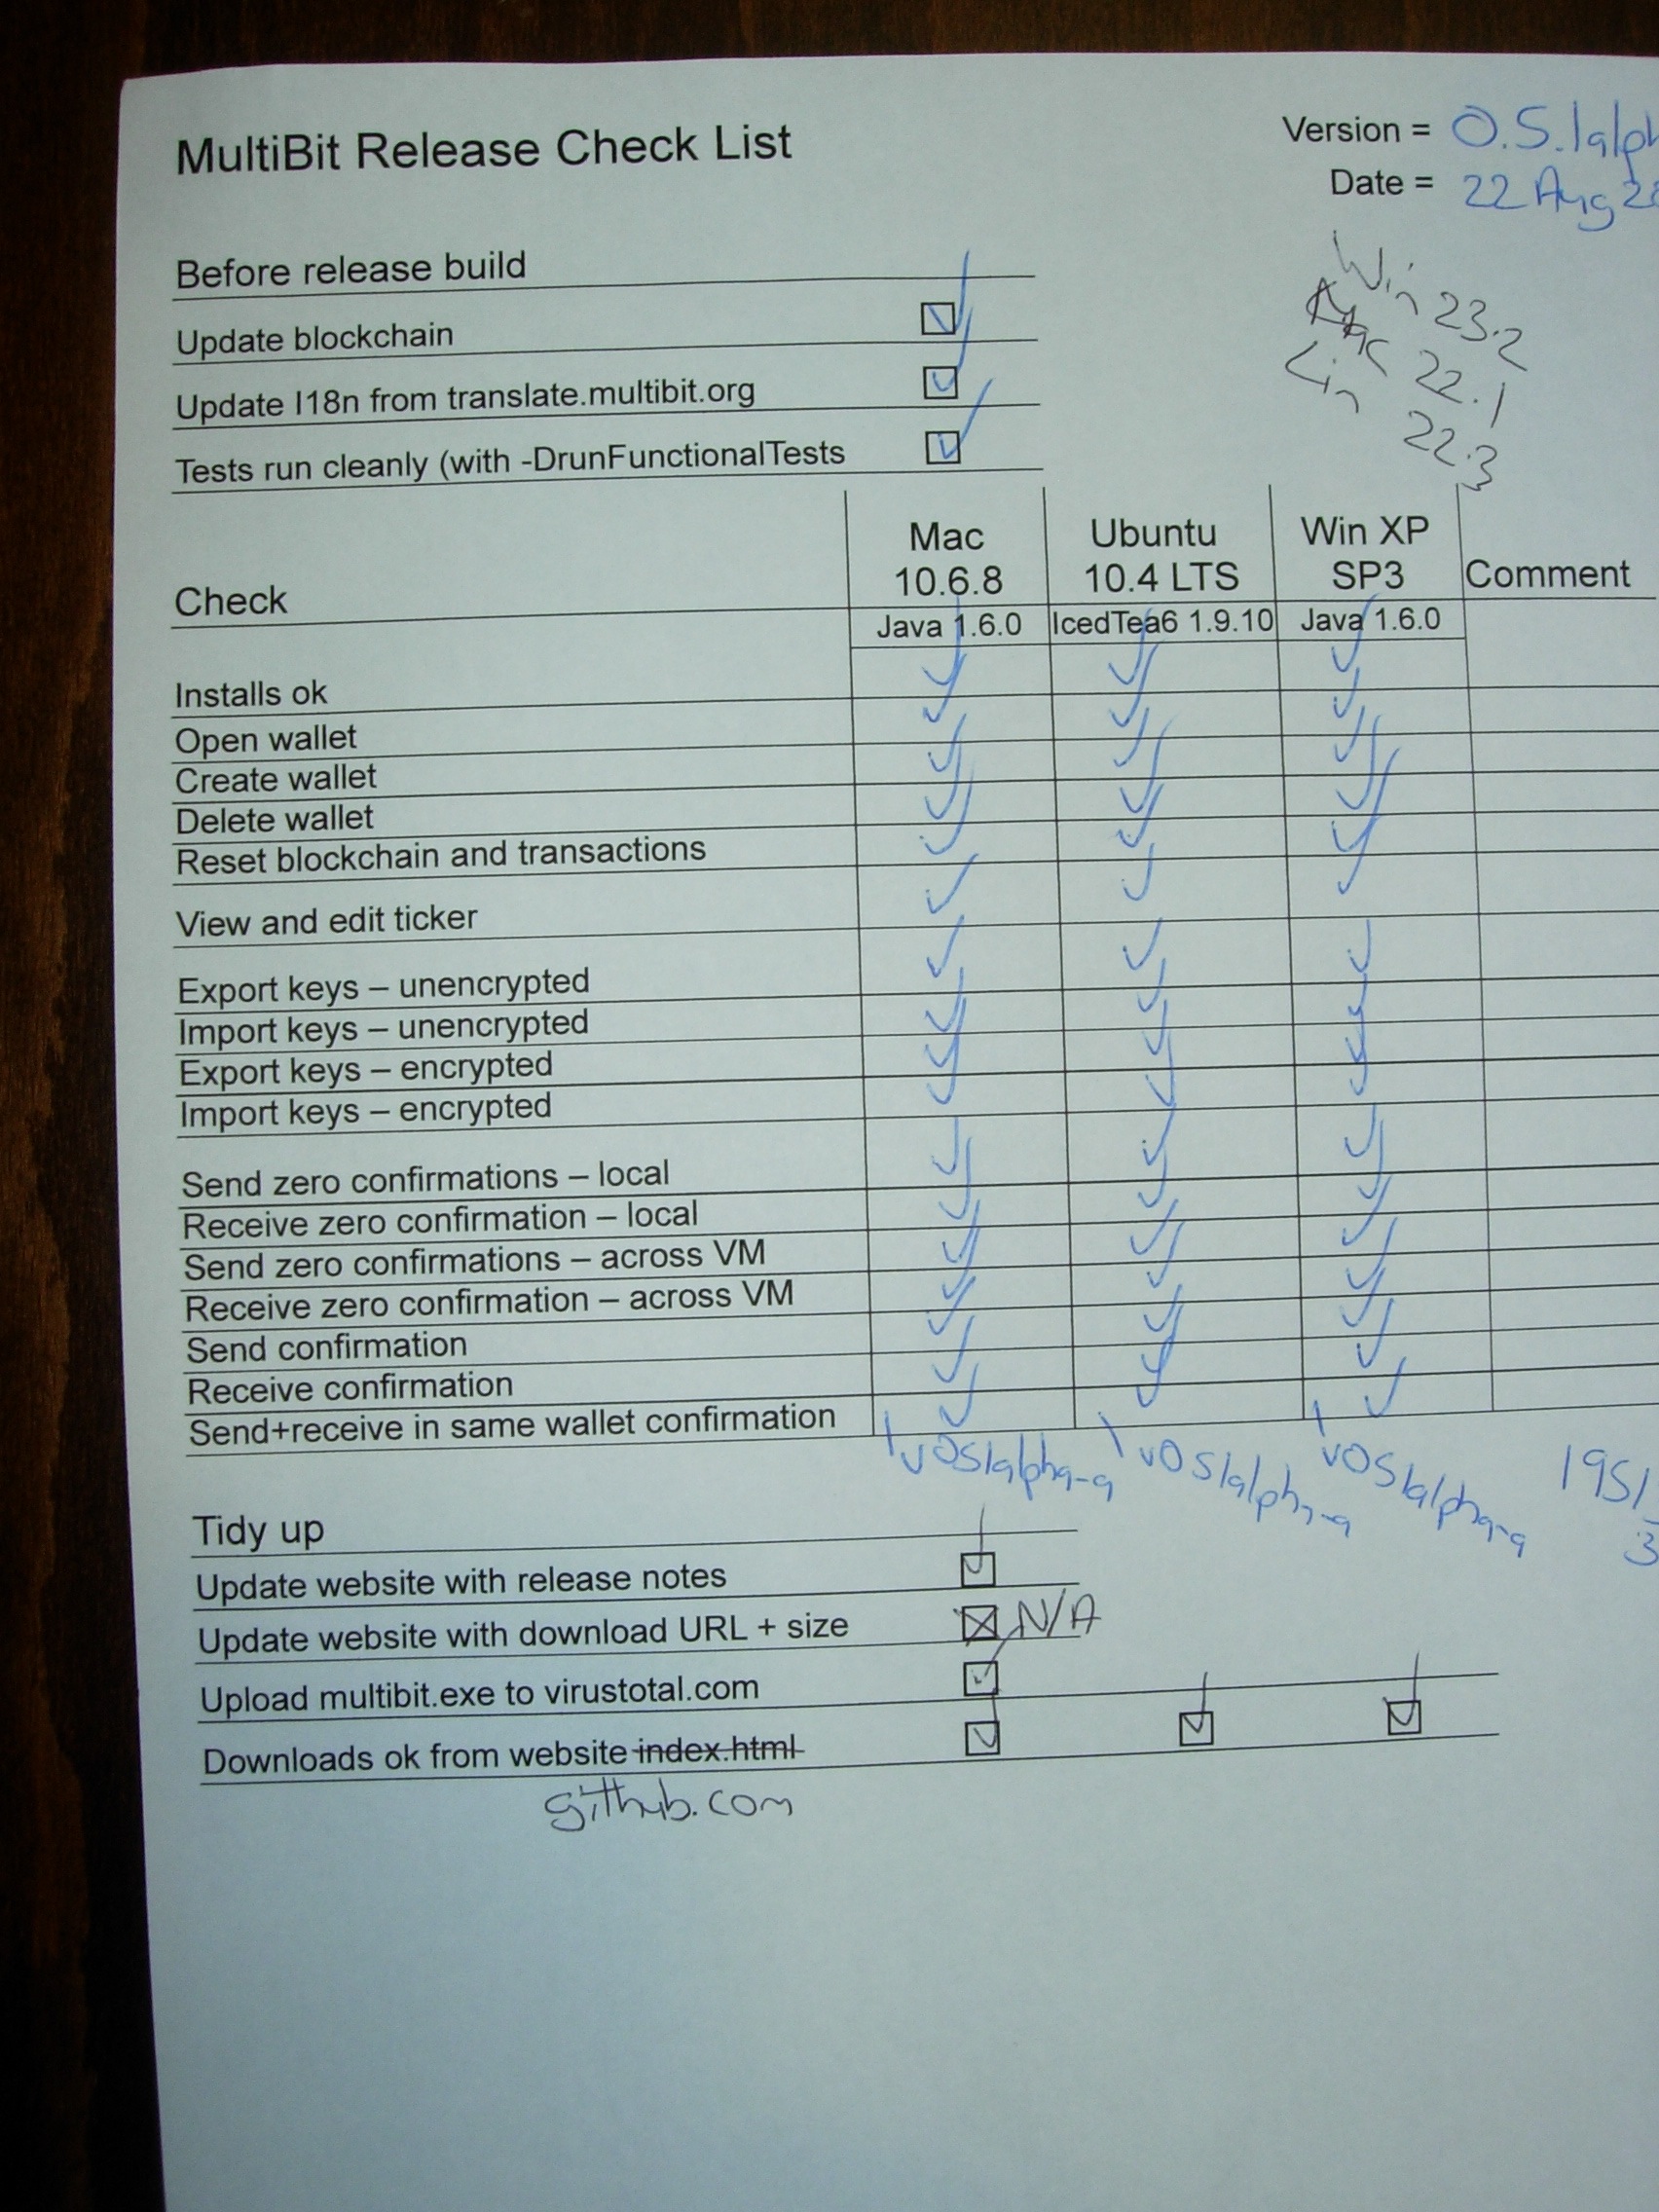 MultiBit Release Check List
Version = 0.5.1alph
Date = 22 Aug 20
Win 23.2
Mac 22.1
Lin 22.3
Before release build
Update blockchain
Update I18n from translate.multibit.org
Tests run cleanly (with -DrunFunctionalTests
Check
Mac 10.6.8
Ubuntu 10.4 LTS
Win XP SP3
Comment
Java 1.6.0 IcedTea6 1.9.10 Java 1.6.0
Installs ok
Open wallet
Create wallet
Delete wallet
Reset blockchain and transactions
View and edit ticker
Export keys – unencrypted
Import keys – unencrypted
Export keys – encrypted
Import keys – encrypted
Send zero confirmations – local
Receive zero confirmation – local
Send zero confirmations – across VM
Receive zero confirmation – across VM
Send confirmation
Receive confirmation
Send+receive in same wallet confirmation
v051alpha-a v051alpha-a v051alpha-a 1951
3
Tidy up
Update website with release notes
Update website with download URL + size N/A
Upload multibit.exe to virustotal.com
Downloads ok from website index.html
github.com